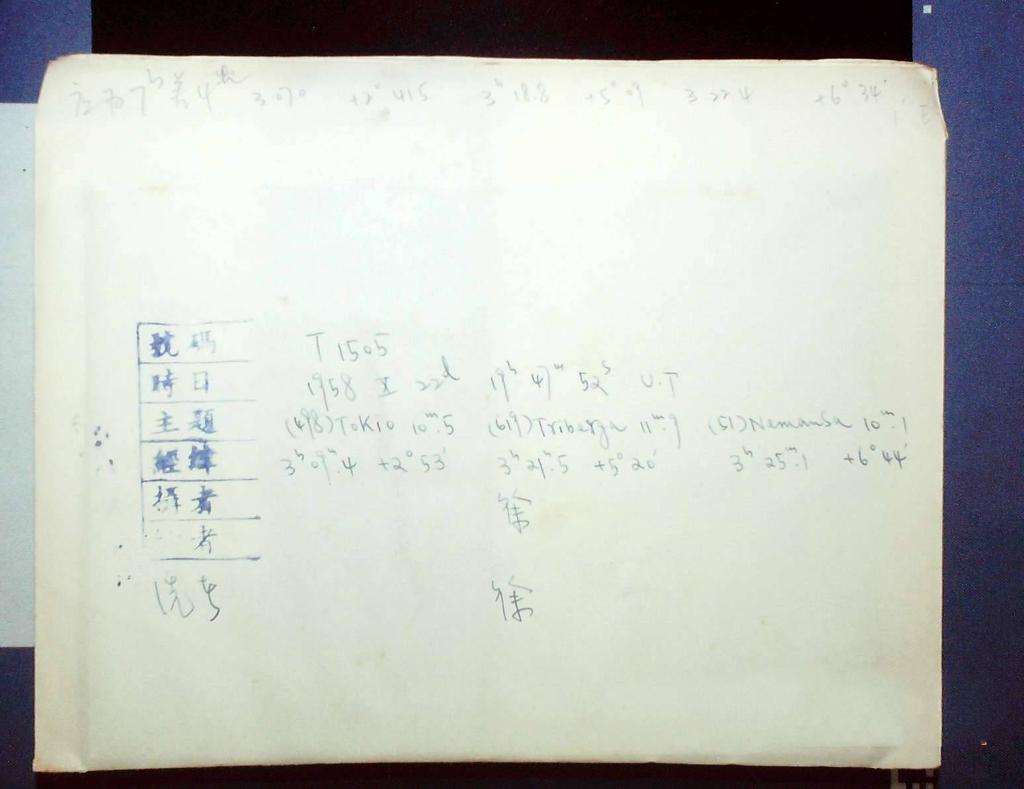 3 07.0 +2° 41.5 3ʰ 18.8 +5° 09' 3 22.4 +6° 34'
號碼 T 1505
時日 1958 X 22ᵈ 19ʰ 47ᵐ 52ˢ U.T
主題 (498) Tokio 10ᵐ.5 (619) Triberga 11ᵐ.9 (51) Nemausa 10ᵐ.1
經緯 3ʰ 09ᵐ.4 +2° 53' 3ʰ 21ᵐ.5 +5° 20' 3ʰ 25ᵐ.1 +6° 44'
攝者 徐
者
洗者 徐